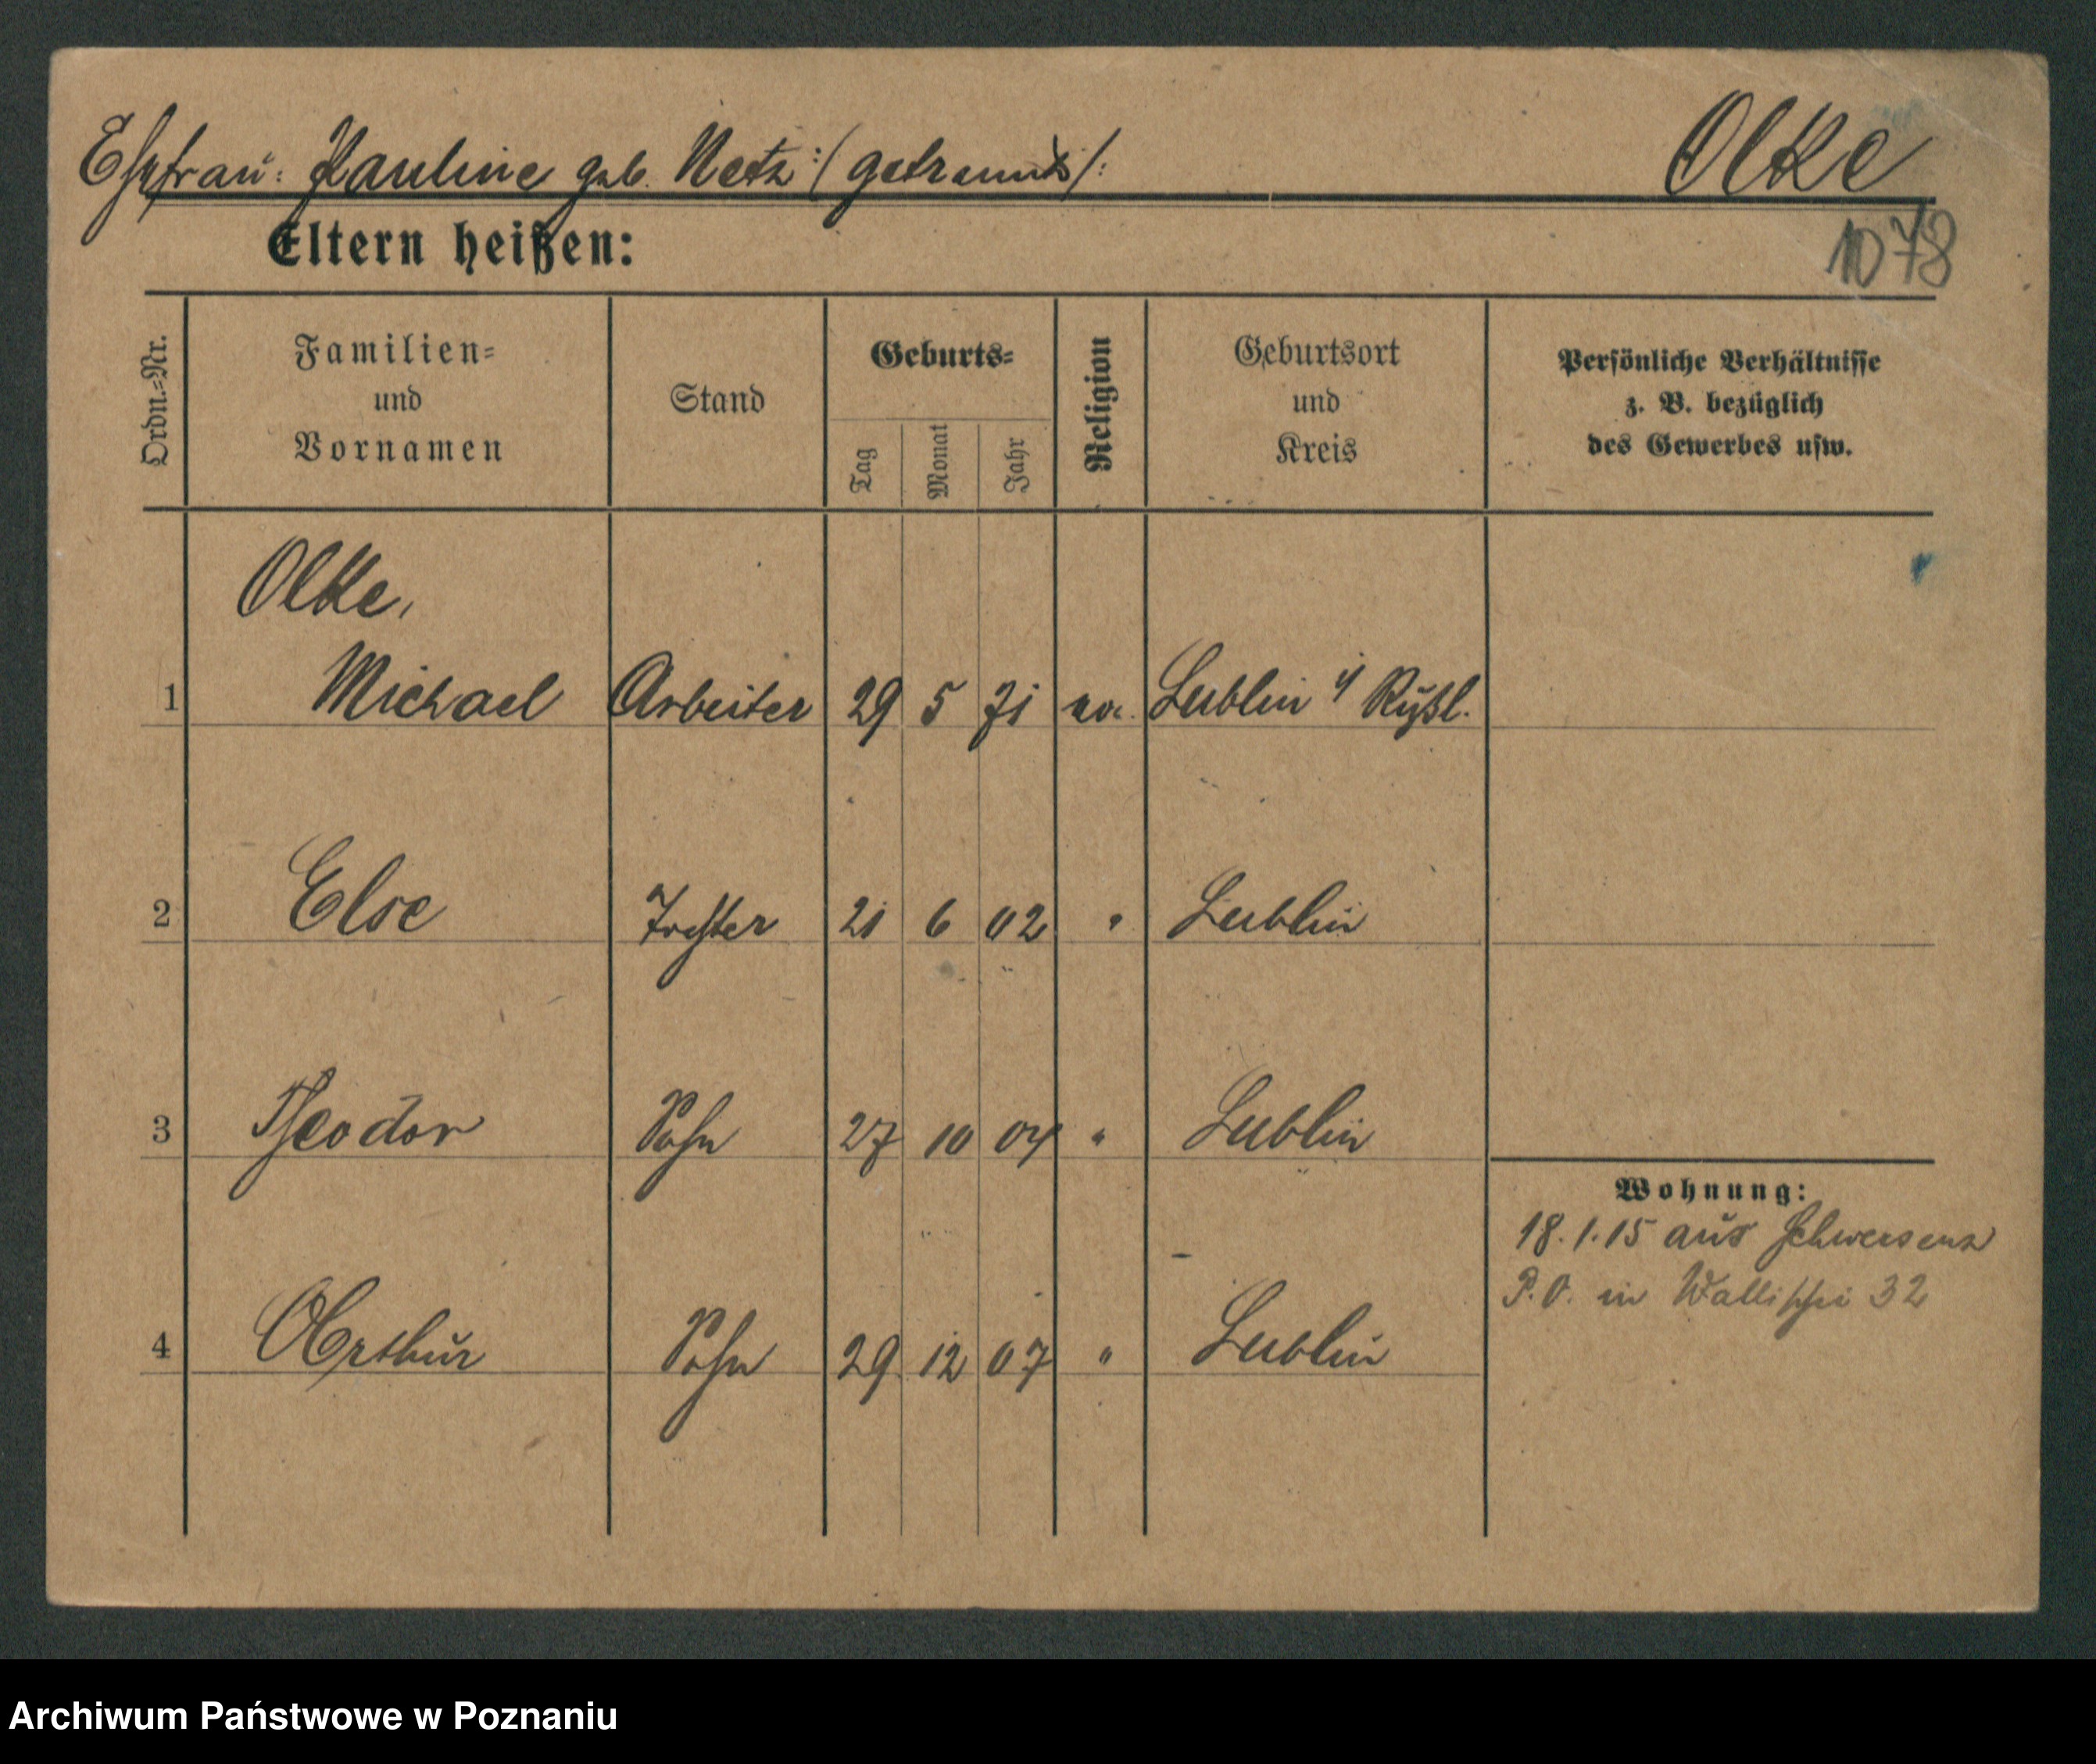 Ehefrau: Pauline geb. Netz :/ getrennt /: Olke
Eltern heißen: 1078
Ordn.=Nr. Familien= und Vornamen Stand Geburts= Tag Monat Jahr Religion Geburtsort und Kreis Persönliche Verhältnisse z. B. bezüglich des Gewerbes usw.
Olke,
1 Michael Arbeiter 29 5 71 Lublin Rußl.
2 Else Tochter 21 6 02 " Lublin
3 Theodor Sohn 27 10 04 " Lublin
Wohnung:
18.1.15 aus Schwersenz
P.O. in Wallischei 32
4 Arthur Sohn 29 12 07 " Lublin
Archiwum Państwowe w Poznaniu